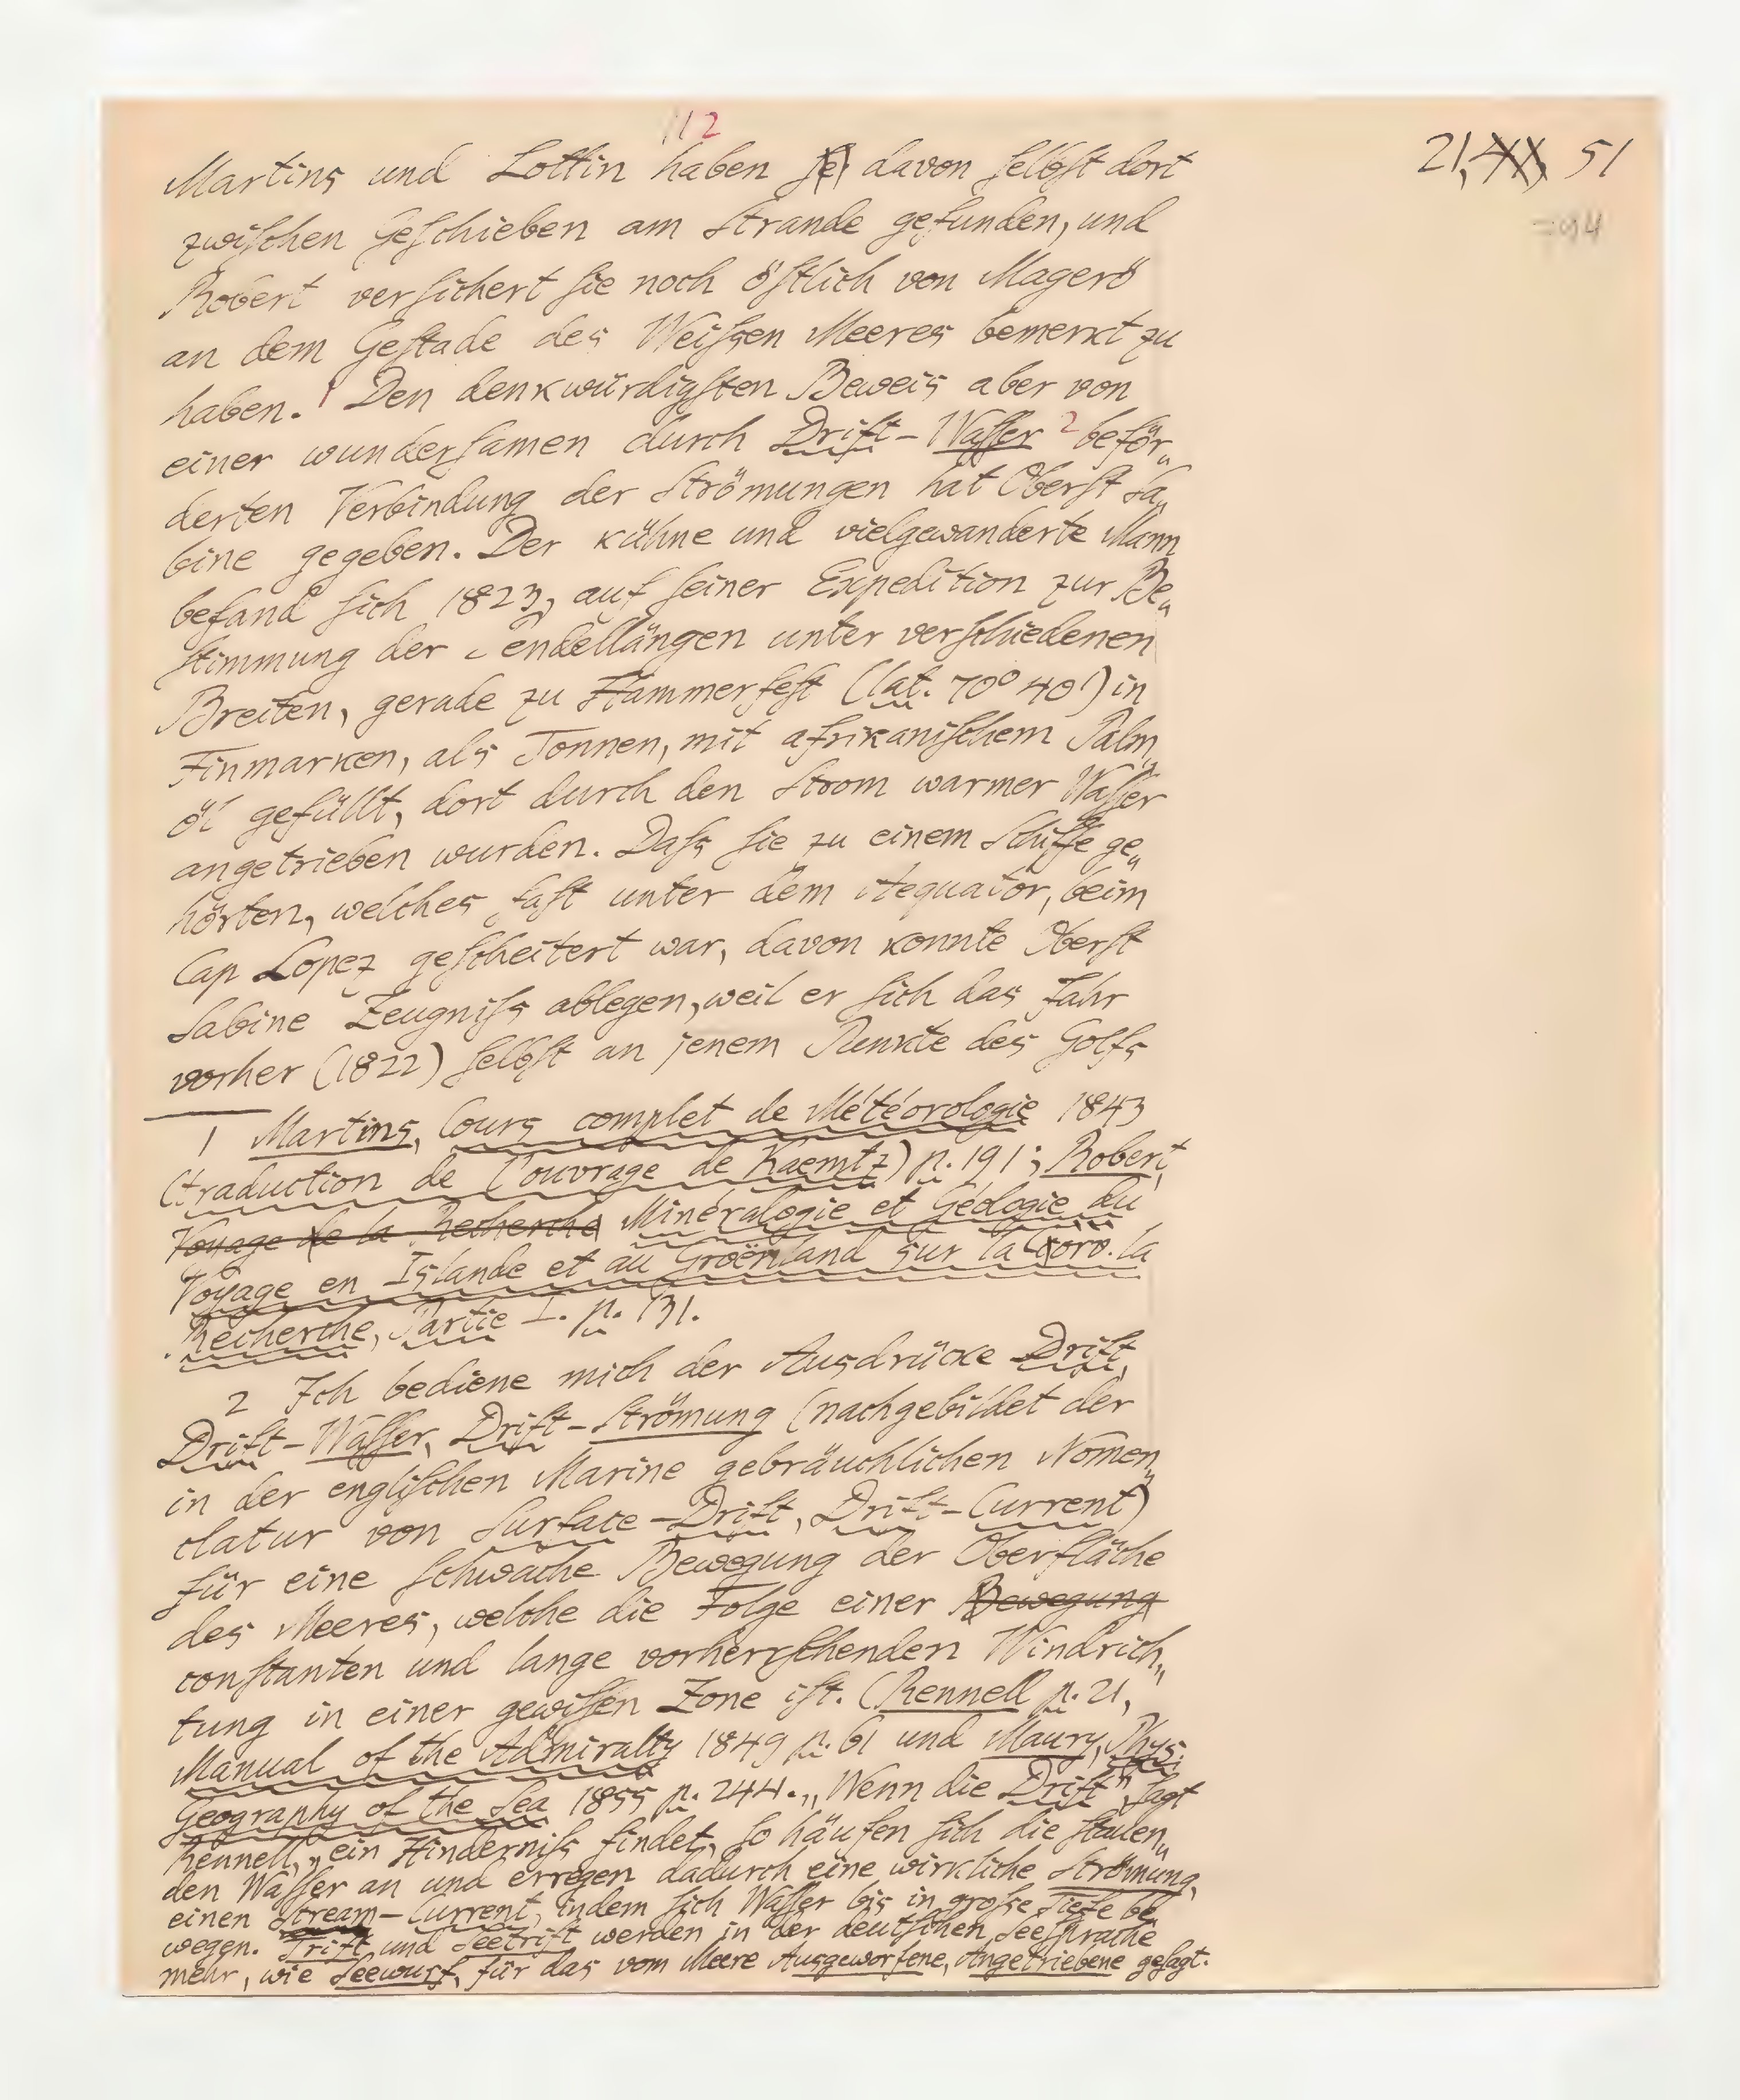 112
21, XX, 51
Martins und Lottin haben se davon selbst dort
zwischen Geschieben am Strande gefunden, und
Robert versichert sie noch östlich von Magerö
an dem Gestade des Weissen Meeres bemerkt zu
haben.¹ Den denkwürdigsten Beweis aber von
einer wundersamen durch Drift-Wasser ² beför„
derten Verbindung der Strömungen hat Oberst Sa„
bine gegeben. Der kühne und vielgewanderte Mann
befand sich 1823, auf seiner Expedition zur Be„
stimmung der endellängen unter verschiedenen
Breiten, gerade zu Hammerfest (lat. 70° 40') in
Finmarken, als Tonnen, mit afrikanischem Palm„
öl gefüllt, dort durch den Strom warmer Wasser
angetrieben wurden. Dass sie zu einem Schiffe ge„
hörten, welches fast unter dem Aequator, beim
Cap Lopez gescheitert war, davon konnte Oberst
Sabine Zeugniss ablegen, weil er sich das Jahr
vorher (1822) selbst an jenem Punkte des Golfs
1 Martins, Cours complet de Météorologie 1843
(traduction de l'ouvrage de Kaemtz) p. 191; Robert,
Voyage de la Recherche Minéralogie et Géologie du
Voyage en Islande et au Groënland sur la Corv. la
Recherche, Partie I. p. 131.
2 Ich bediene mich der Ausdrücke Drift,
Drift-Wasser, Drift-Strömung (nachgebildet der
in der englischen Marine gebräuchlichen Nomen„
clatur von Surface-Drift, Drift-Current)
für eine schwache Bewegung der Oberfläche
des Meeres, welche die Folge einer Bewegung
constanten und lange vorherrschenden Windrich„
tung in einer gewissen Zone ist. (Rennell p. 21,
Manual of the Admiralty 1849 p. 61 und Maury, Phys.
Geography of the Sea 1855 p. 244. „Wenn die Drift", sagt
Rennell, „ein Hinderniss findet, so häufen sich die stauen„
den Wasser an und erregen dadurch eine wirkliche Strömung,
einen Stream-Current, indem sich Wasser bis in grosse Tiefe be
wegen. Trift und Seetrift werden in der deutschen Seesprache
mehr, wie Seewurf, für das vom Meere Ausgeworfene, Angetriebene gesagt.